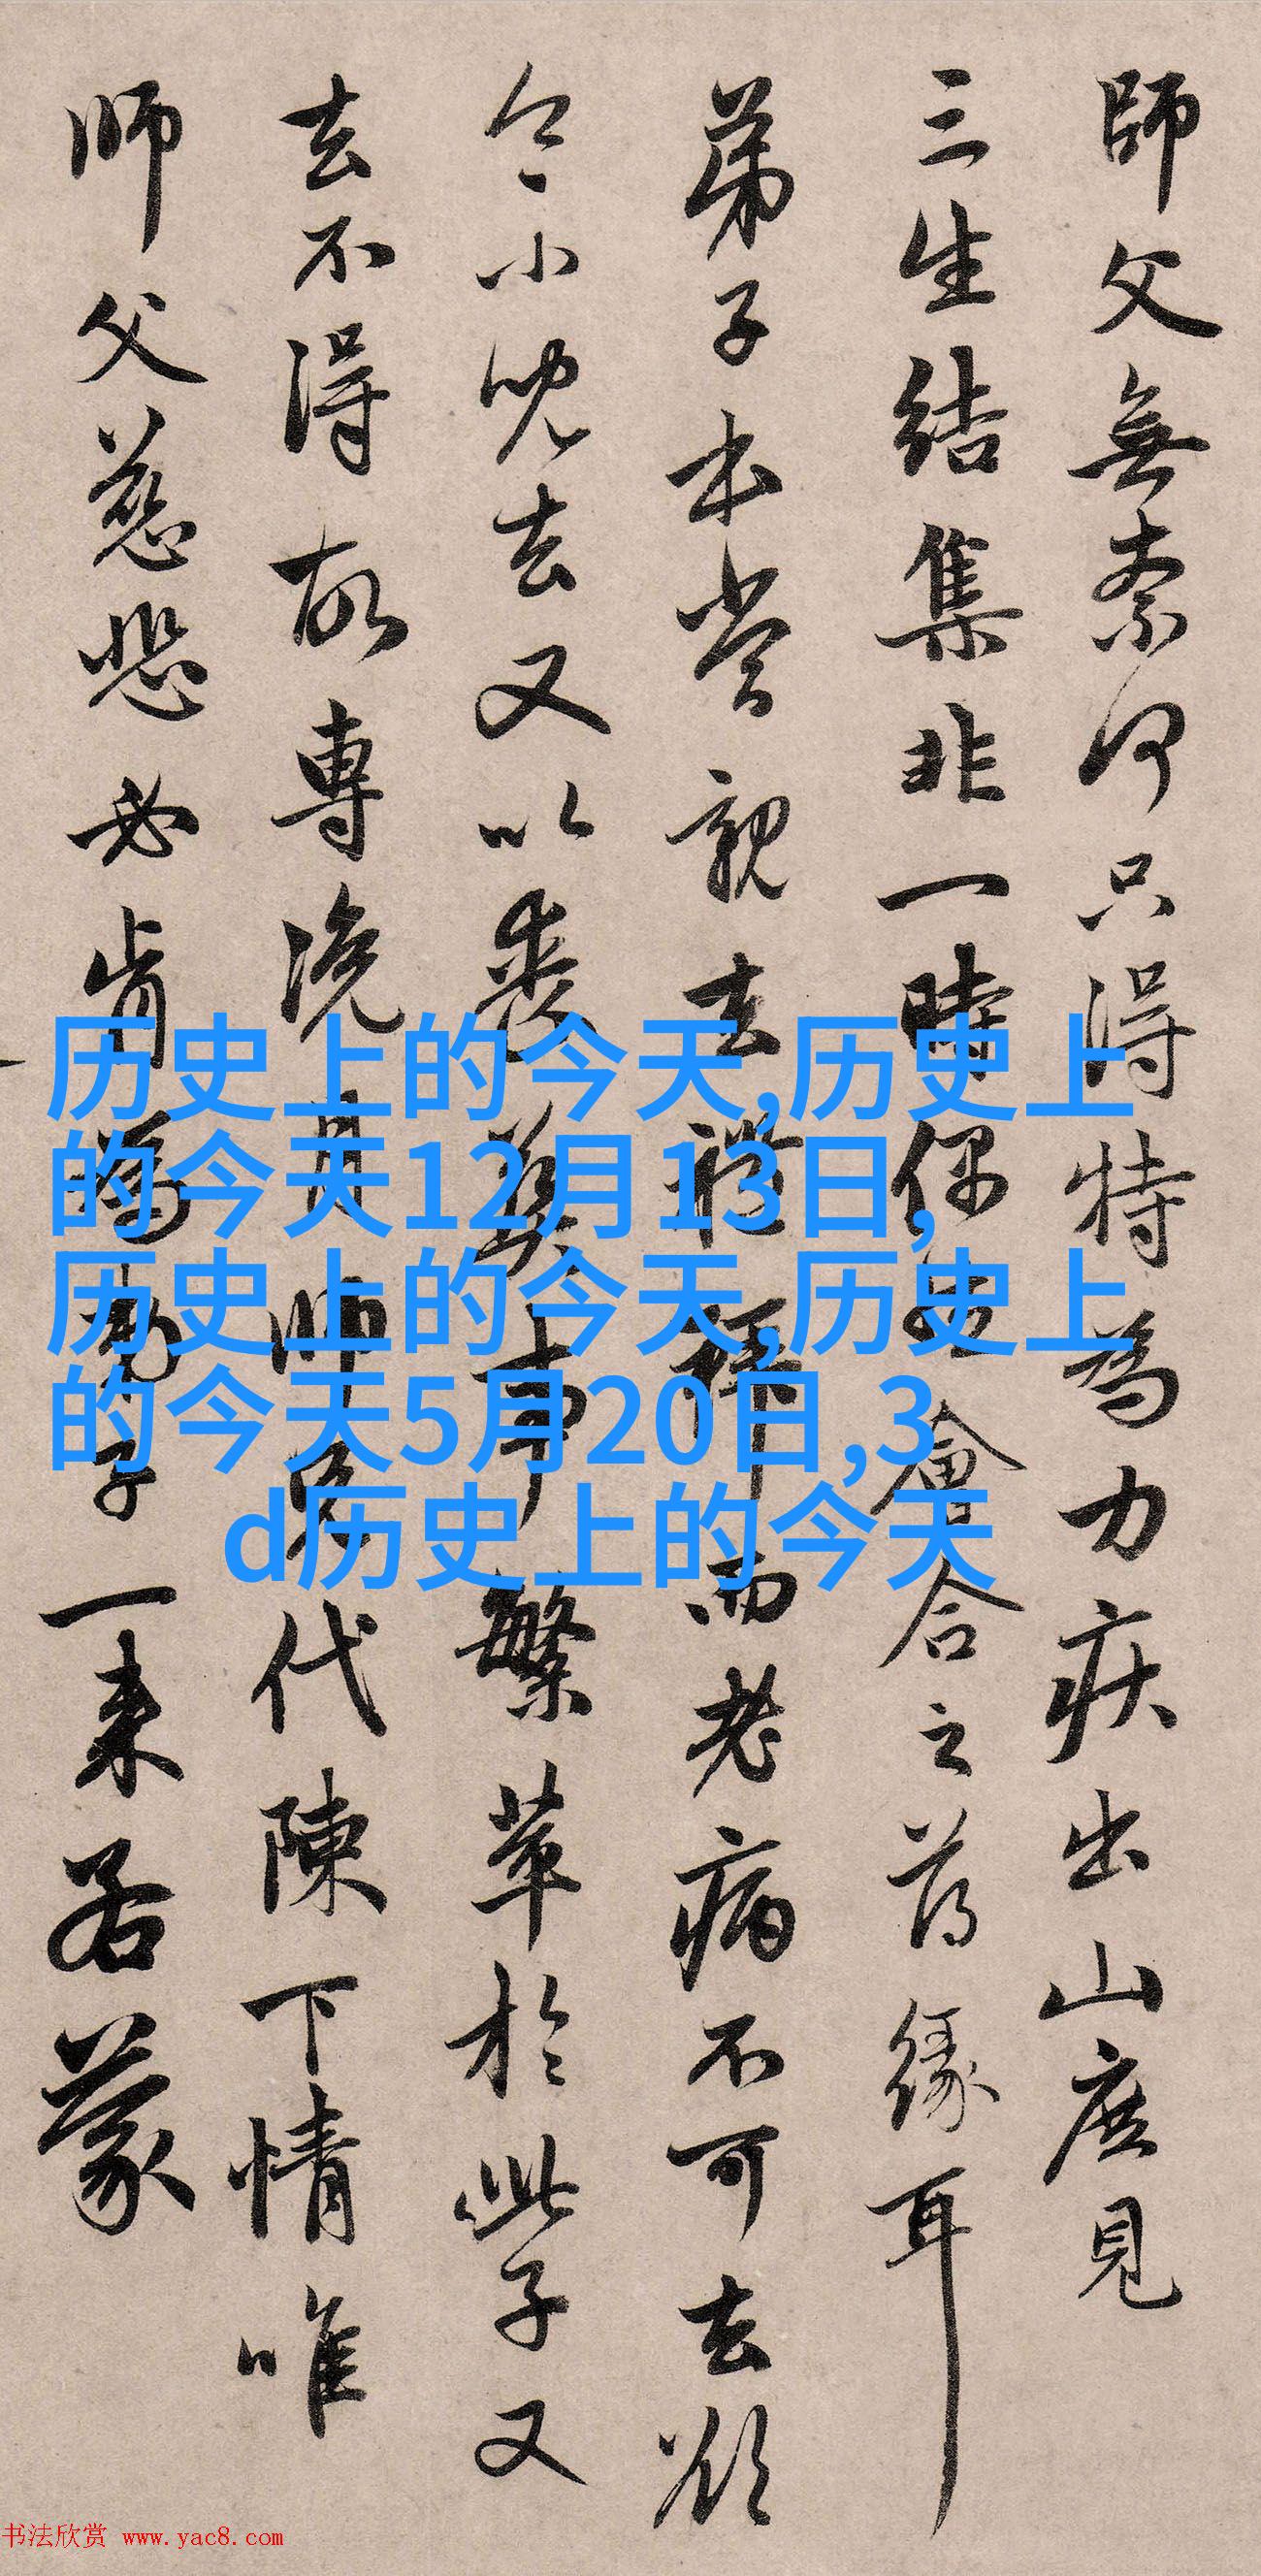 師父無奈何只得特為力疾出山庶見
三生結集非一時偶會合之薄緣耳
弟子本當親去禮拜而老病不可去欲
令小兒去又以喪葬事繁萃於此子又
去不得故專浼月師兄代陳下情唯
師父慈悲必肯為弟子一來若蒙
历史上的今天,历史上
的今天12月13日,
历史上的今天,历史上
的今天5月20日,3
d历史上的今天
书法欣赏 www.yac8.com